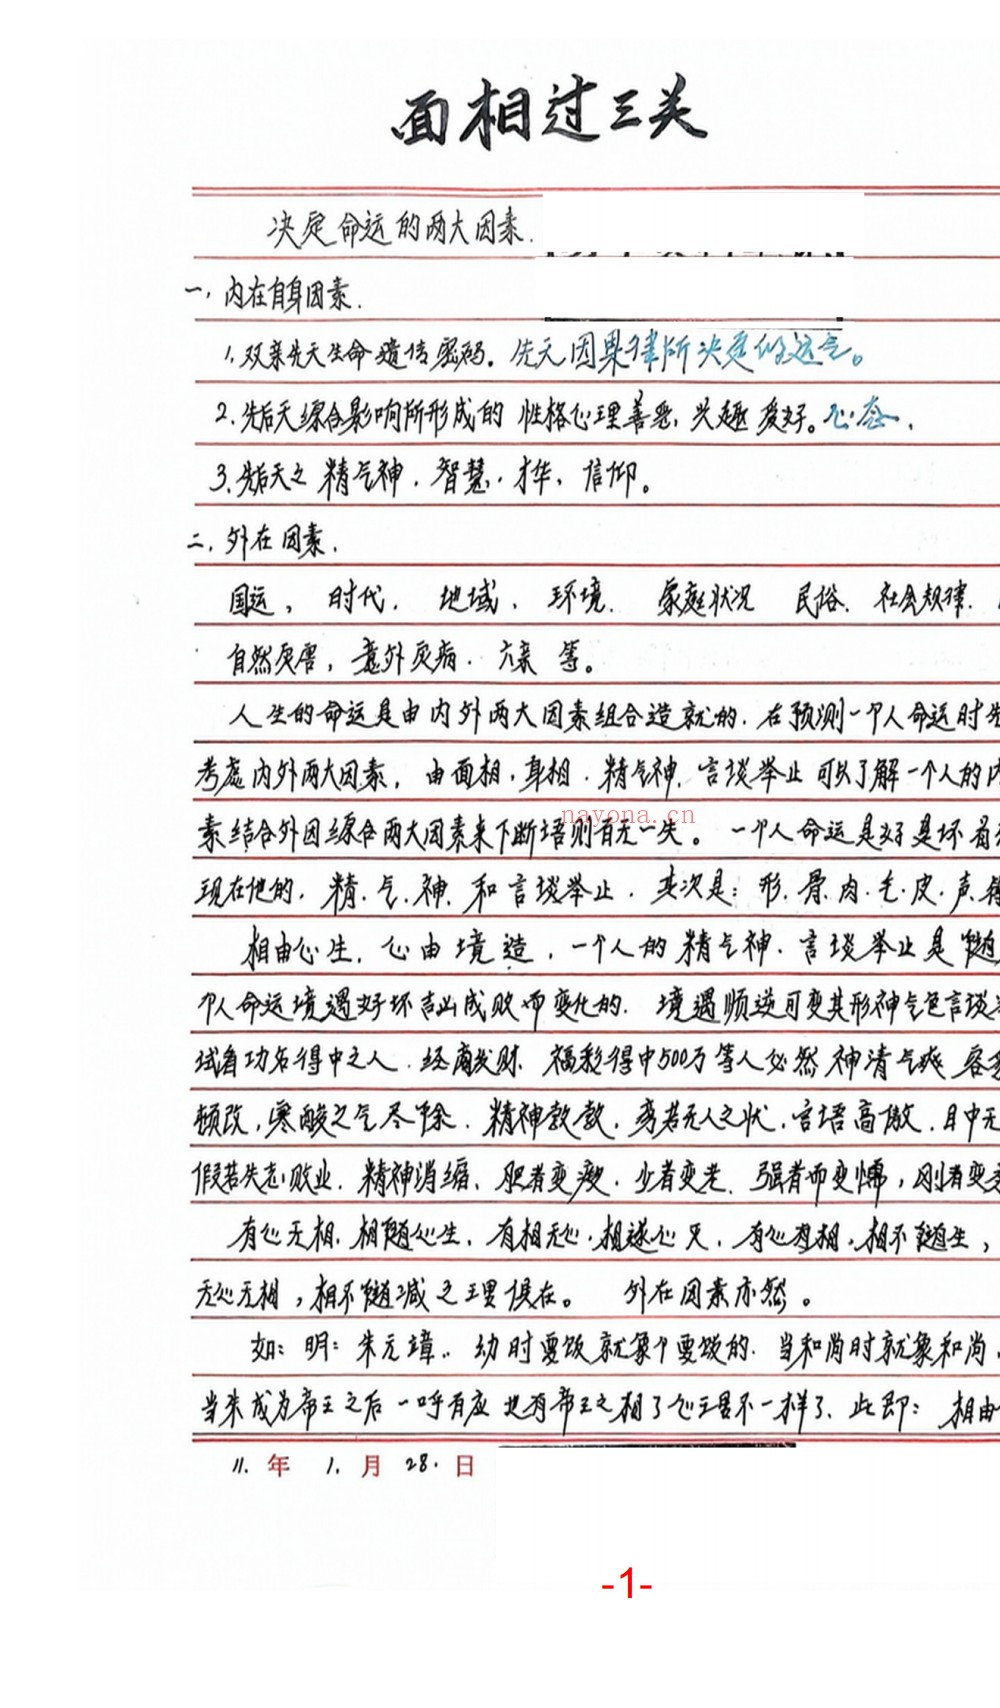 面相过三关
决定命运的两大因素.
一,内在自身因素.
1.双亲先天生命遗传密码.先天因果律所决定的运气。
2.先后天综合影响所形成的 性格心理善恶,兴趣爱好。心态.
3.先后天之 精气神.智慧.才华、信仰。
二.外在因素.
国运, 时代. 地域. 环境. 家庭状况 民俗. 社会规律.
自然灾害,意外灾病.六亲 等。
人生的命运是由内外两大因素组合造就的.在预测一个人命运时先
考虑内外两大因素. 由面相.身相.精气神.言谈举止可以了解一个人的内
nayona.cn
素结合外因综合两大因素来下断语则百无一失。一个人命运是好是坏首先
现在他的,精.气.神.和言谈举止.其次是:形.骨.肉.毛.皮.声.
相由心生.心由境造,一个人的精气神.言谈举止是随
个人命运境遇好坏吉凶成败而变化的.境遇顺逆可变其形神气色言谈举
试者功名得中之人.经商发财.福彩得中500万等人必然神清气爽容
顿改,寒酸之气尽除.精神款款,旁若无人之状,言语高傲.目中无
假若失志败业.精神消缩、肥者变瘦.少者变老.强者而变懦,刚者变
有心无相.相随心生.有相无心.相逐心灭.有心有相.相不随生,
无心无相,相不随减之理俱在。 外在因素亦然。
如:明:朱元璋..幼时要饭就象个要饭的.当和尚时就象和尚.
当朱成为帝王之后一呼百应也有帝王之相了心王居不一样了.此即:相由
11.年 1.月 28.日
-1-